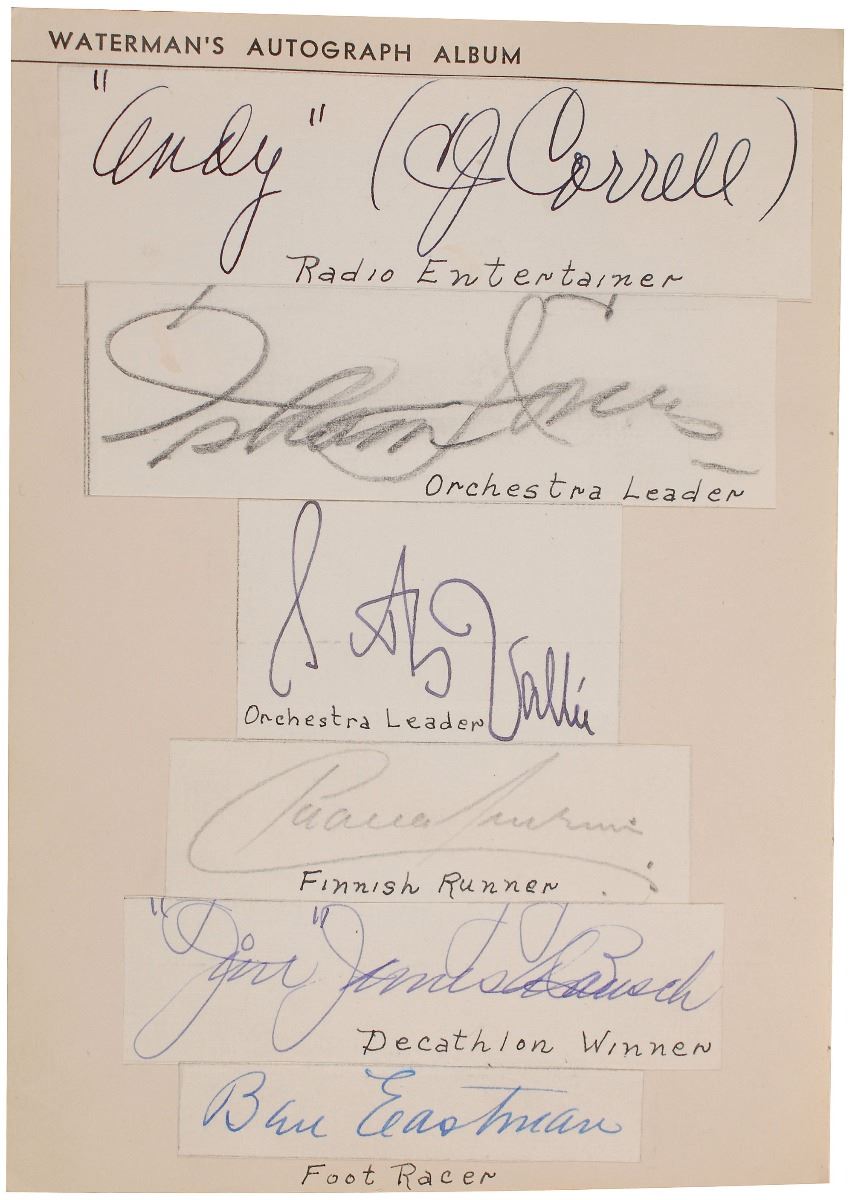 WATERMAN'S AUTOGRAPH ALBUM
"Andy" (CJ Correll)
Radio Entertainer
Isham Jones
Orchestra Leader
Vallée
Orchestra Leader
Paavo Nurmi
Finnish Runner
"Jim" James Bausch
Decathlon Winner
Ben Eastman
Foot Racer